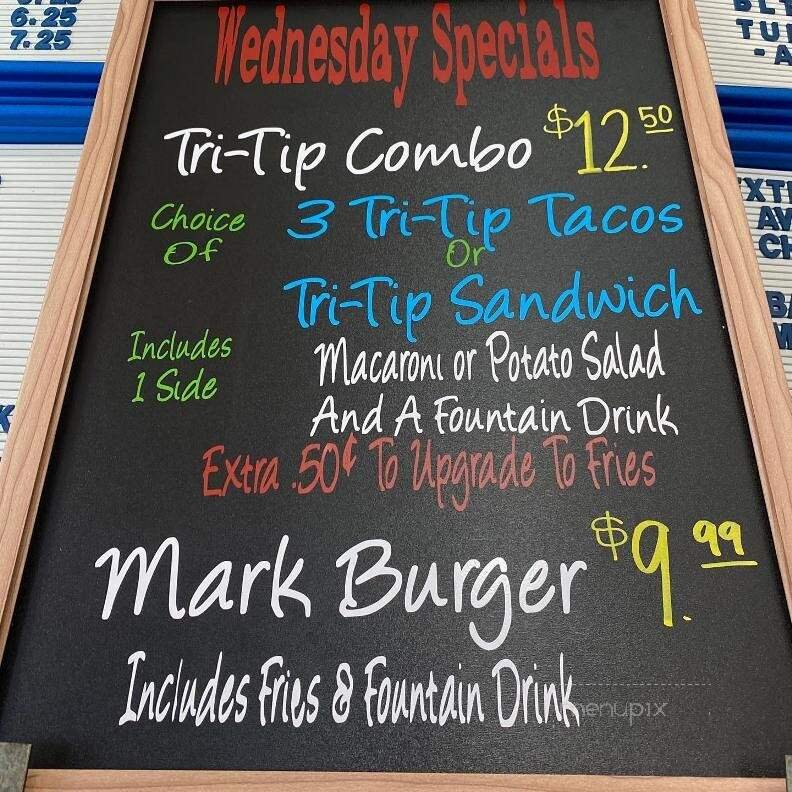 6.25
7.25
Wednesday Specials
Tri-Tip Combo $12.50
Choice Of
3 Tri-Tip Tacos
Or
Tri-Tip Sandwich
Includes
1 Side
Macaroni or Potato Salad
And A Fountain Drink
Extra .50¢ To Upgrade To Fries
Mark Burger $9.99
Includes Fries & Fountain Drink
menupix